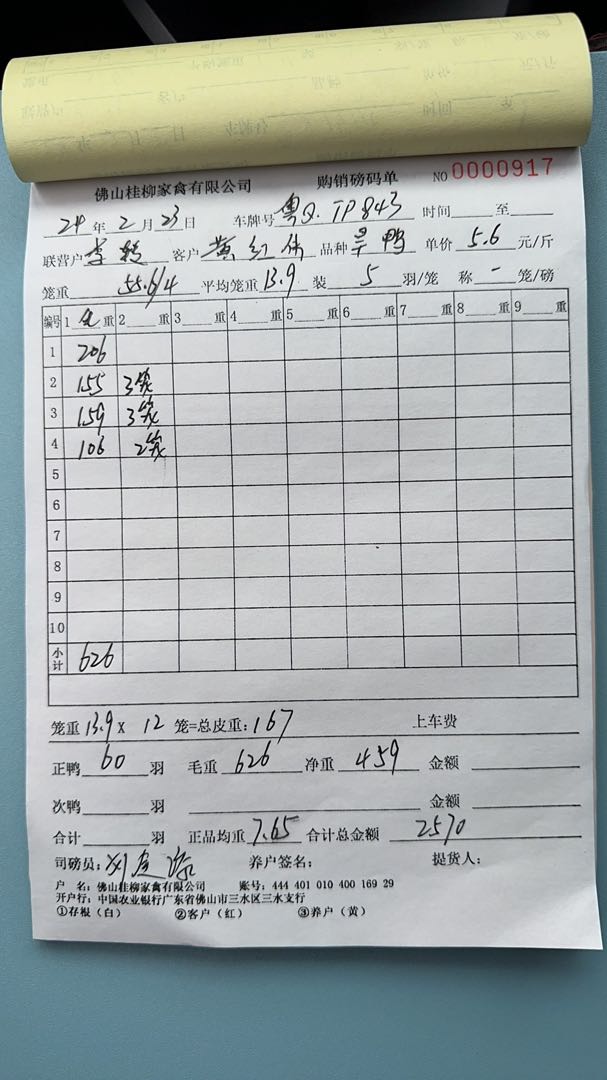 佛山桂柳家禽有限公司 购销磅码单 NO 0000917
24 年 2 月 23 日 车牌号 粤Q.TP843 时间 至
联营户 李 客户 黄红伟 品种 旱鸭 单价 5.6 元/斤
笼重 55.6/4 平均笼重 13.9 装 5 羽/笼 称 - 笼/磅
编号 1 重 2 重 3 重 4 重 5 重 6 重 7 重 8 重 9 重
1 206
2 155 3笼
3 159 3笼
4 106 2笼
5
6
7
8
9
10
小计 626
笼重 13.9 X 12 笼=总皮重: 167 上车费
正鸭 60 羽 毛重 626 净重 459 金额
次鸭 羽 金额
合计 羽 正品均重 7.65 合计总金额 2570
司磅员: 刘 养户签名: 提货人:
户 名: 佛山桂柳家禽有限公司 账号: 444 401 010 400 169 29
开户行: 中国农业银行广东省佛山市三水区三水支行
①存根(白) ②客户(红) ③养户(黄)